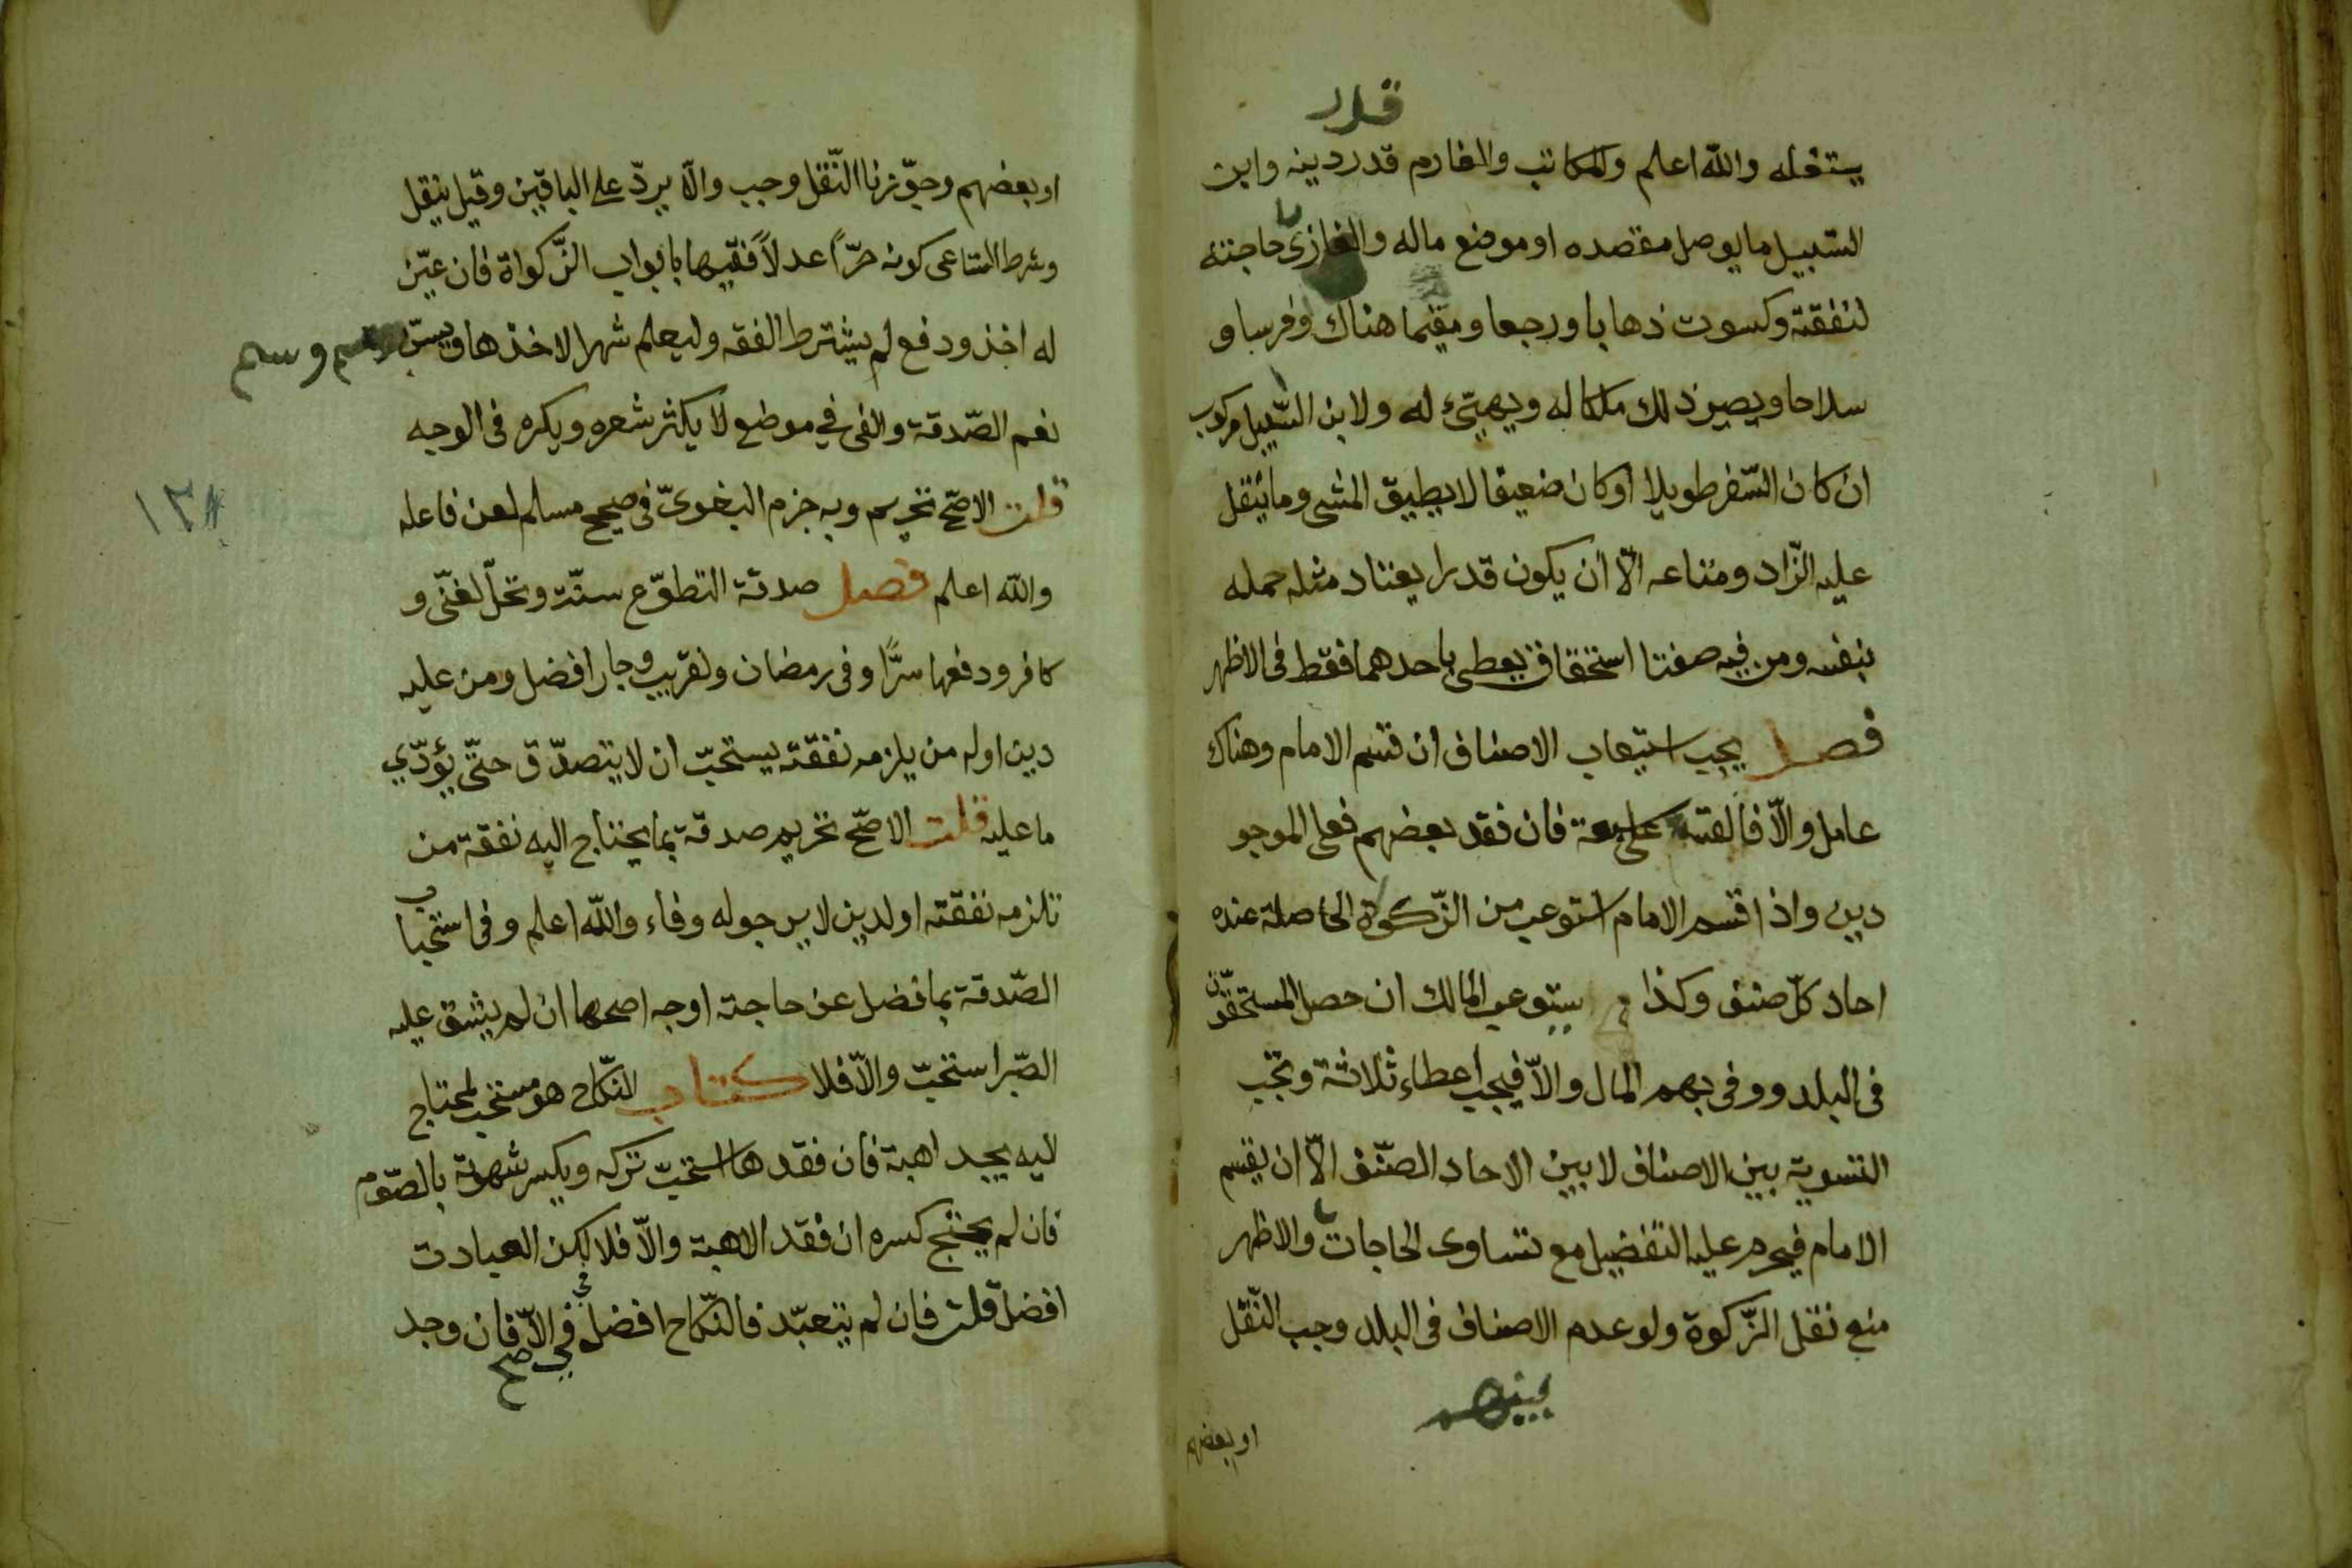 قدر
يستغله والله اعلم والمكاتب والغارم قدر دينه وابن
السّبيل ما يوصل مقصده او موضع ماله والغازى حاجته
لنفقته وكسوت ذهابا ورجعا ومقيما هناك وفرسا و
سلاحا ويصير ذلك ملكا له ويهيّئ له ولابن السّبيل مركوب
ان كان السّفر طويلا او كان ضعيفا لا يطيق المشى وما ينقل
عليه الزّاد ومتاعه الّا ان يكون قدرا يعتاد مثله حمله
بنفسه ومن فيه صفتا استحقاق يعطى باحدهما فقط فى الاظهر
فصل يجب استيعاب الاصناف ان قسم الامام وهناك
عامل والّا فالقسمة على سبعة فان فقد بعضهم فعلى الموجو
دين واذا قسم الامام استوعب من الزّكوة الحاصلة عنده
احاد كلّ صنف وكذا يستوعب المالك ان حصل المستحقّون
فى البلد ووفى بهم المال والّا فيجب اعطاء ثلاثة وتجب
التسوية بين الاصناف لا بين الاحاد الصّنف الّا ان يقسم
الامام فيحرم عليه التفضيل مع تساوى الحاجات والاظهر
منع نقل الزّكوة ولو عدم الاصناف فى البلد وجب النّقل
بينهم
او بعضهم
او بعضهم وجوّزنا النّقل وجب والّا يردّ على الباقين وقيل ينقل
وشرط السّاعى كونه حرّا عدلاً فقيها بابواب الزّكواة فان عيّن
له اخذ ودفع لم يشترط الفقه وليعلم شهرا لاخذها ويسنّ وسم
نعم الصّدقة والفى في موضع لا يكثر شعره ويكره فى الوجه
قلت الاصحّ تحريم وبه جزم البغوىّ فى صحيح مسلم لعن فاعله
والله اعلم فصل صدقة التطوّع سنّة وتحلّ لغنّى و
كافر ودفعها سرًّا وفى رمضان ولقريب وجار افضل ومن عليه
دين اوله من يلزمه نفقته يستحبّ ان لا يتصدّق حتّى يؤدّي
ما عليه قلت الاصحّ تحريم صدقة بما يحتاج اليه نفقة من
تلزمه نفقته او لدين لا يرجو له وفاء والله اعلم وفى استحباب
الصّدقة بما فضل عن حاجته اوجه اصحها ان لم يشق عليه
الصّبر استحبّ والّا فلا كتاب النكاح هو مستحب لمحتاج
ليه يجد اهبة فان فقدها استحبّ تركه ويكسر شهوته بالصّوم
فان لم يحتج كسره ان فقد الاهبة والّا فلا لكن العبادت
افضل قلت فان لم يتعبّد فالنّكاح افضل فى الّا فان وجد
صح
١٢٨